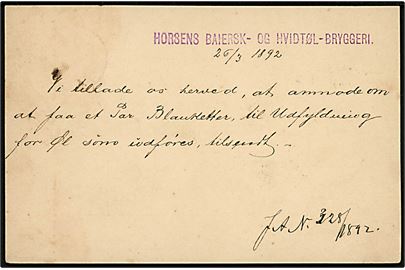 HORSENS BAIERSK- OG HVIDTØL-BRYGGERI.
26/3 1892
Vi tillade os herved, at anmode om
at faa et Par Blanketter, til Udfyldning
for Øl som indföres, tilsendt. -
J.A.N. 328/1892.